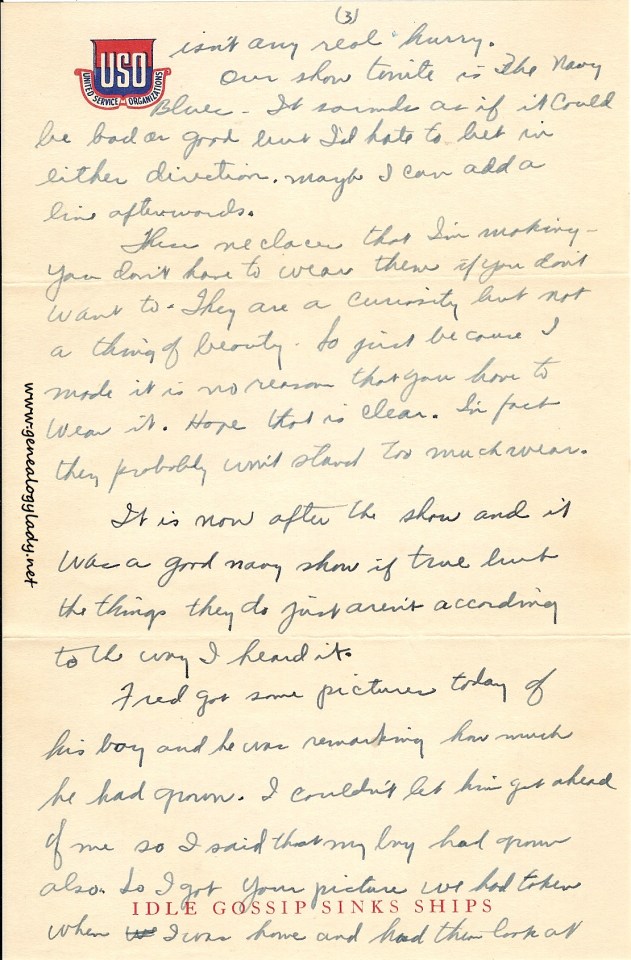 (3)
USO
UNITED SERVICE ORGANIZATIONS
isn't any real hurry.
Our show tonite is The Navy
Blues - It sounds as if it could
be bad or good but I'd hate to bet in
either direction. maybe I can add a
line afterwords.
These neclaces that I'm making -
you don't have to wear them if you don't
want to. They are a curiosity but not
a thing of beauty. So just because I
made it is no reason that you have to
wear it. Hope that is clear. In fact
they probably won't stand too much wear.
It is now after the show and it
was a good navy show if true but
the things they do just aren't according
to the way I heard it.
Fred got some pictures today of
his boy and he was remarking how much
he had grown. I couldn't let him get ahead
of me so I said that my boy had grown
also. So I got your picture we had taken
when we I was home and had them look at
IDLE GOSSIP SINKS SHIPS
www.genealogylady.net